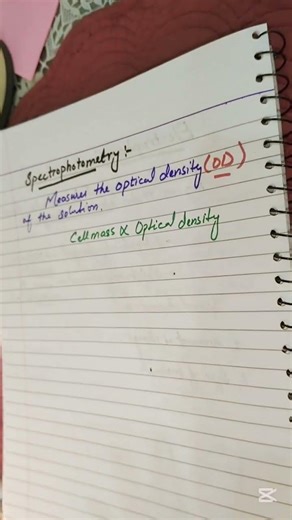 Spectrophotometry :-
Measures the optical density (OD)
of the solution.
Cell mass ∝ Optical density
CapCut